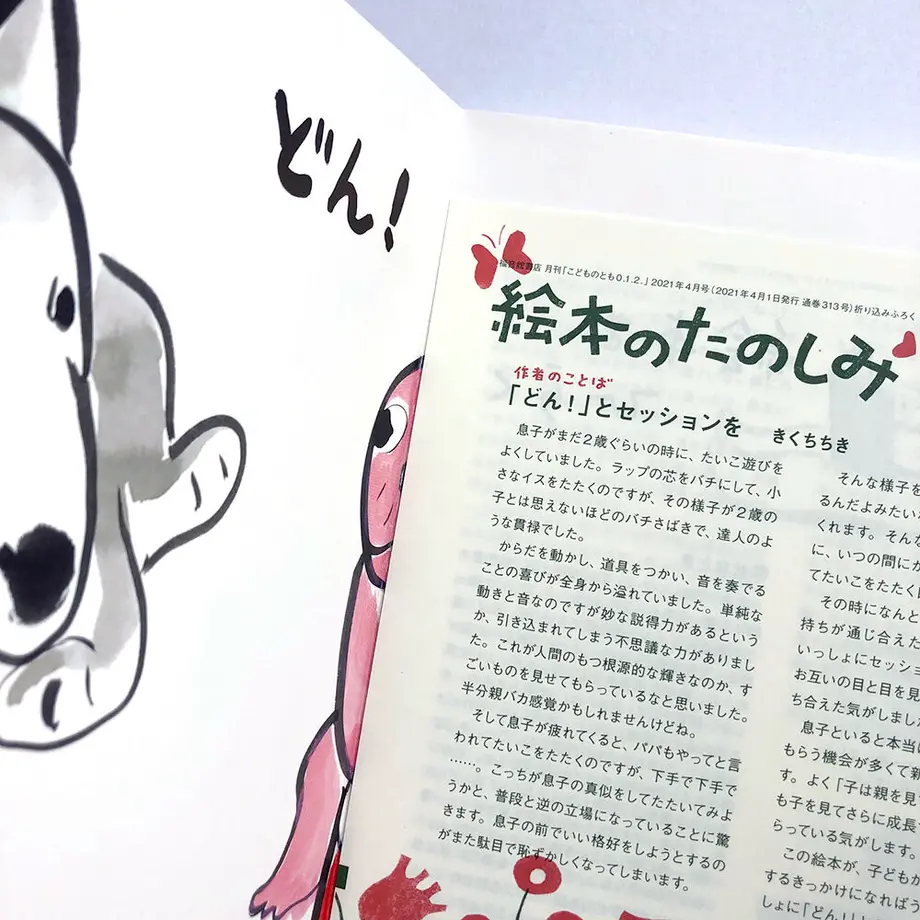 どん！
福音館書店 月刊「こどものとも0.1.2.」2021年4月号（2021年4月1日発行 通巻313号）折り込みふろく
絵本のたのしみ
作者のことば
「どん！」とセッションを きくちちき
息子がまだ2歳ぐらいの時に、たいこ遊びを
よくしていました。ラップの芯をバチにして、小
さなイスをたたくのですが、その様子が2歳の
子とは思えないほどのバチさばきで、達人のよ
うな貫禄でした。
からだを動かし、道具をつかい、音を奏でる
ことの喜びが全身から溢れていました。単純な
動きと音なのですが妙な説得力があるという
か、引き込まれてしまう不思議な力がありまし
た。これが人間のもつ根源的な輝きなのか、す
ごいものを見せてもらっているなと思いました。
半分親バカ感覚かもしれませんけどね。
そして息子が疲れてくると、パパもやってと言
われてたいこをたたくのですが、下手で下手で
……。こっちが息子の真似をしてたたいてみよ
うかと、普段と逆の立場になっていることに驚
きます。息子の前でいい格好をしようとするの
がまた駄目で恥ずかしくなってしまいます。
そんな様子を
るんだよみたいな
くれます。そんな
に、いつの間にか
てたいこをたたく
その時になんと
持ちが通じ合えた
いっしょにセッショ
お互いの目と目を見
ち合えた気がしまし
息子といると本当に
もらう機会が多くて親
す。よく「子は親を見て
も子を見てさらに成長
らっている気がします。
この絵本が、子どもが
するきっかけになればう
しょに「どん！」